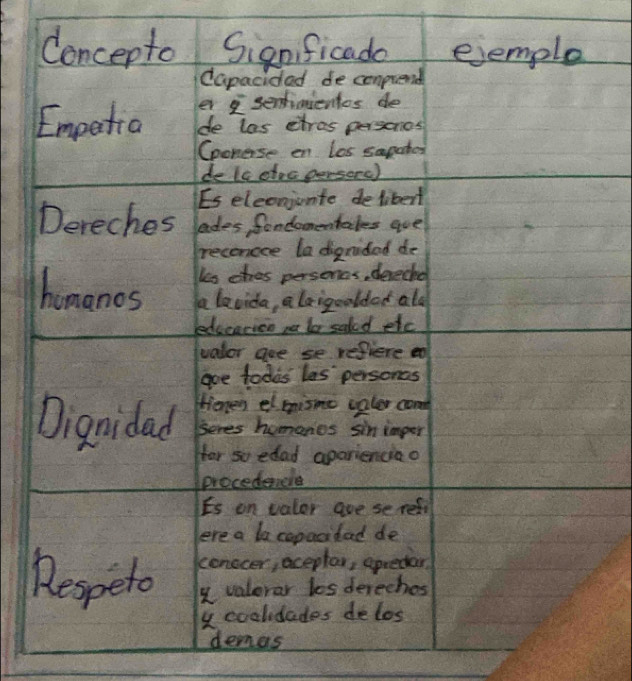 Concepto Significado ejemplo
Empatia
Capacidad de comprend
er y sentimientos de
de las otras personas
(ponerse en los zapatos
de la otra persona)
Derechos
humanos
Es el conjunto de libert
ades, fundamentales que
reconoce la dignidad de
las otras personas, derecho
a la vida, a la igualdad a la
educacion a la salud etc
Dignidad
valor que se refiere
que todas las personas
tienen el mismo valor com
seres humanos sin impor
tar su edad apariencia o
procedencia
Respeto
Es un valor que se refi
ere a la capacidad de
conocer, aceptar, apreciar
y valorar los derechos
y cualidades de los
demas